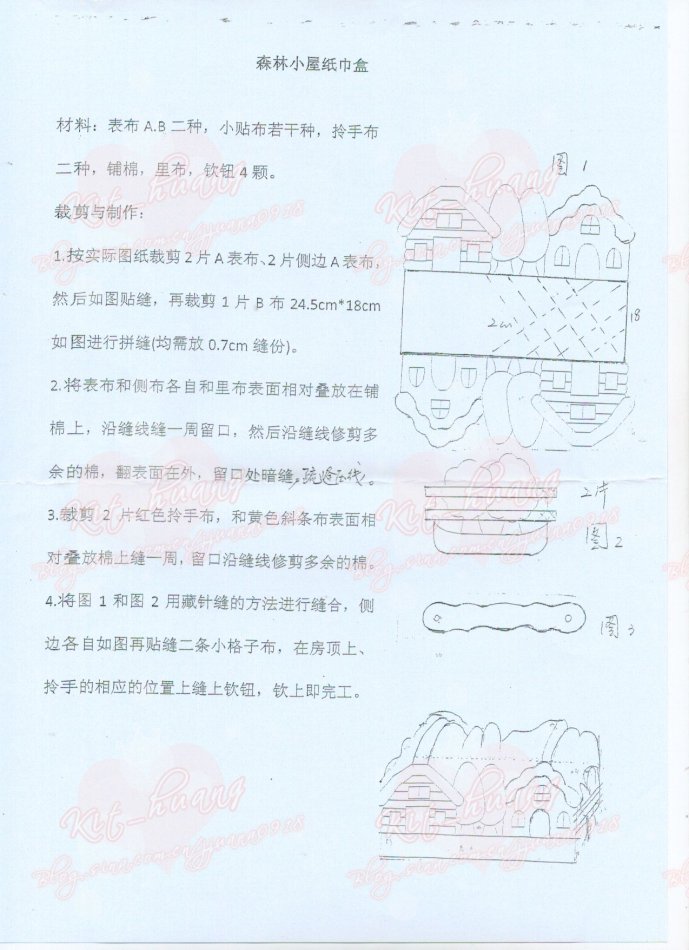 森林小屋纸巾盒
材料：表布 A.B 二种，小贴布若干种，拎手布
二种，铺棉，里布，钦钮 4 颗。
裁剪与制作：
1.按实际图纸裁剪 2 片 A 表布、2 片侧边 A 表布，
然后如图贴缝，再裁剪 1 片 B 布 24.5cm*18cm
如图进行拼缝(均需放 0.7cm 缝份)。
2.将表布和侧布各自和里布表面相对叠放在铺
棉上，沿缝线缝一周留口，然后沿缝线修剪多
余的棉，翻表面在外，留口处暗缝，疏缝压线。
3.裁剪 2 片红色拎手布，和黄色斜条布表面相
对叠放棉上缝一周，留口沿缝线修剪多余的棉。
4.将图 1 和图 2 用藏针缝的方法进行缝合，侧
边各自如图再贴缝二条小格子布，在房顶上、
拎手的相应的位置上缝上钦钮，钦上即完工。
图 1
18
2cm
2片
图 2
图 3
Kit-huang